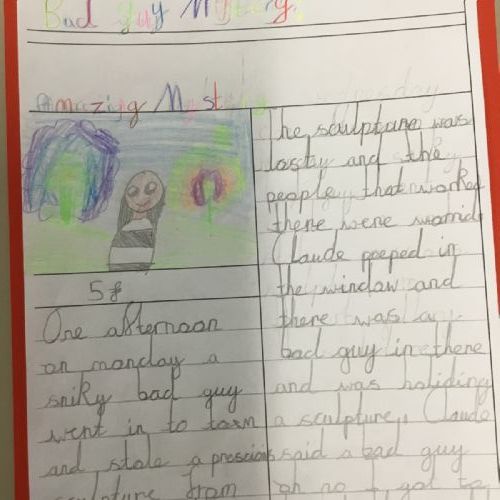 Bad guy Mystery.
Amazing Myst
5f
One afternoon
on monday a
sniky bad guy
went in to town
and stole a prescious
sculpture from
The sculpture was
losty and the
people that worked
there were worrid
Claude peeped in
the window and
there was a
bad guy in there
and was holiding
a sculpture, Claude
said a bad guy
oh no I got to